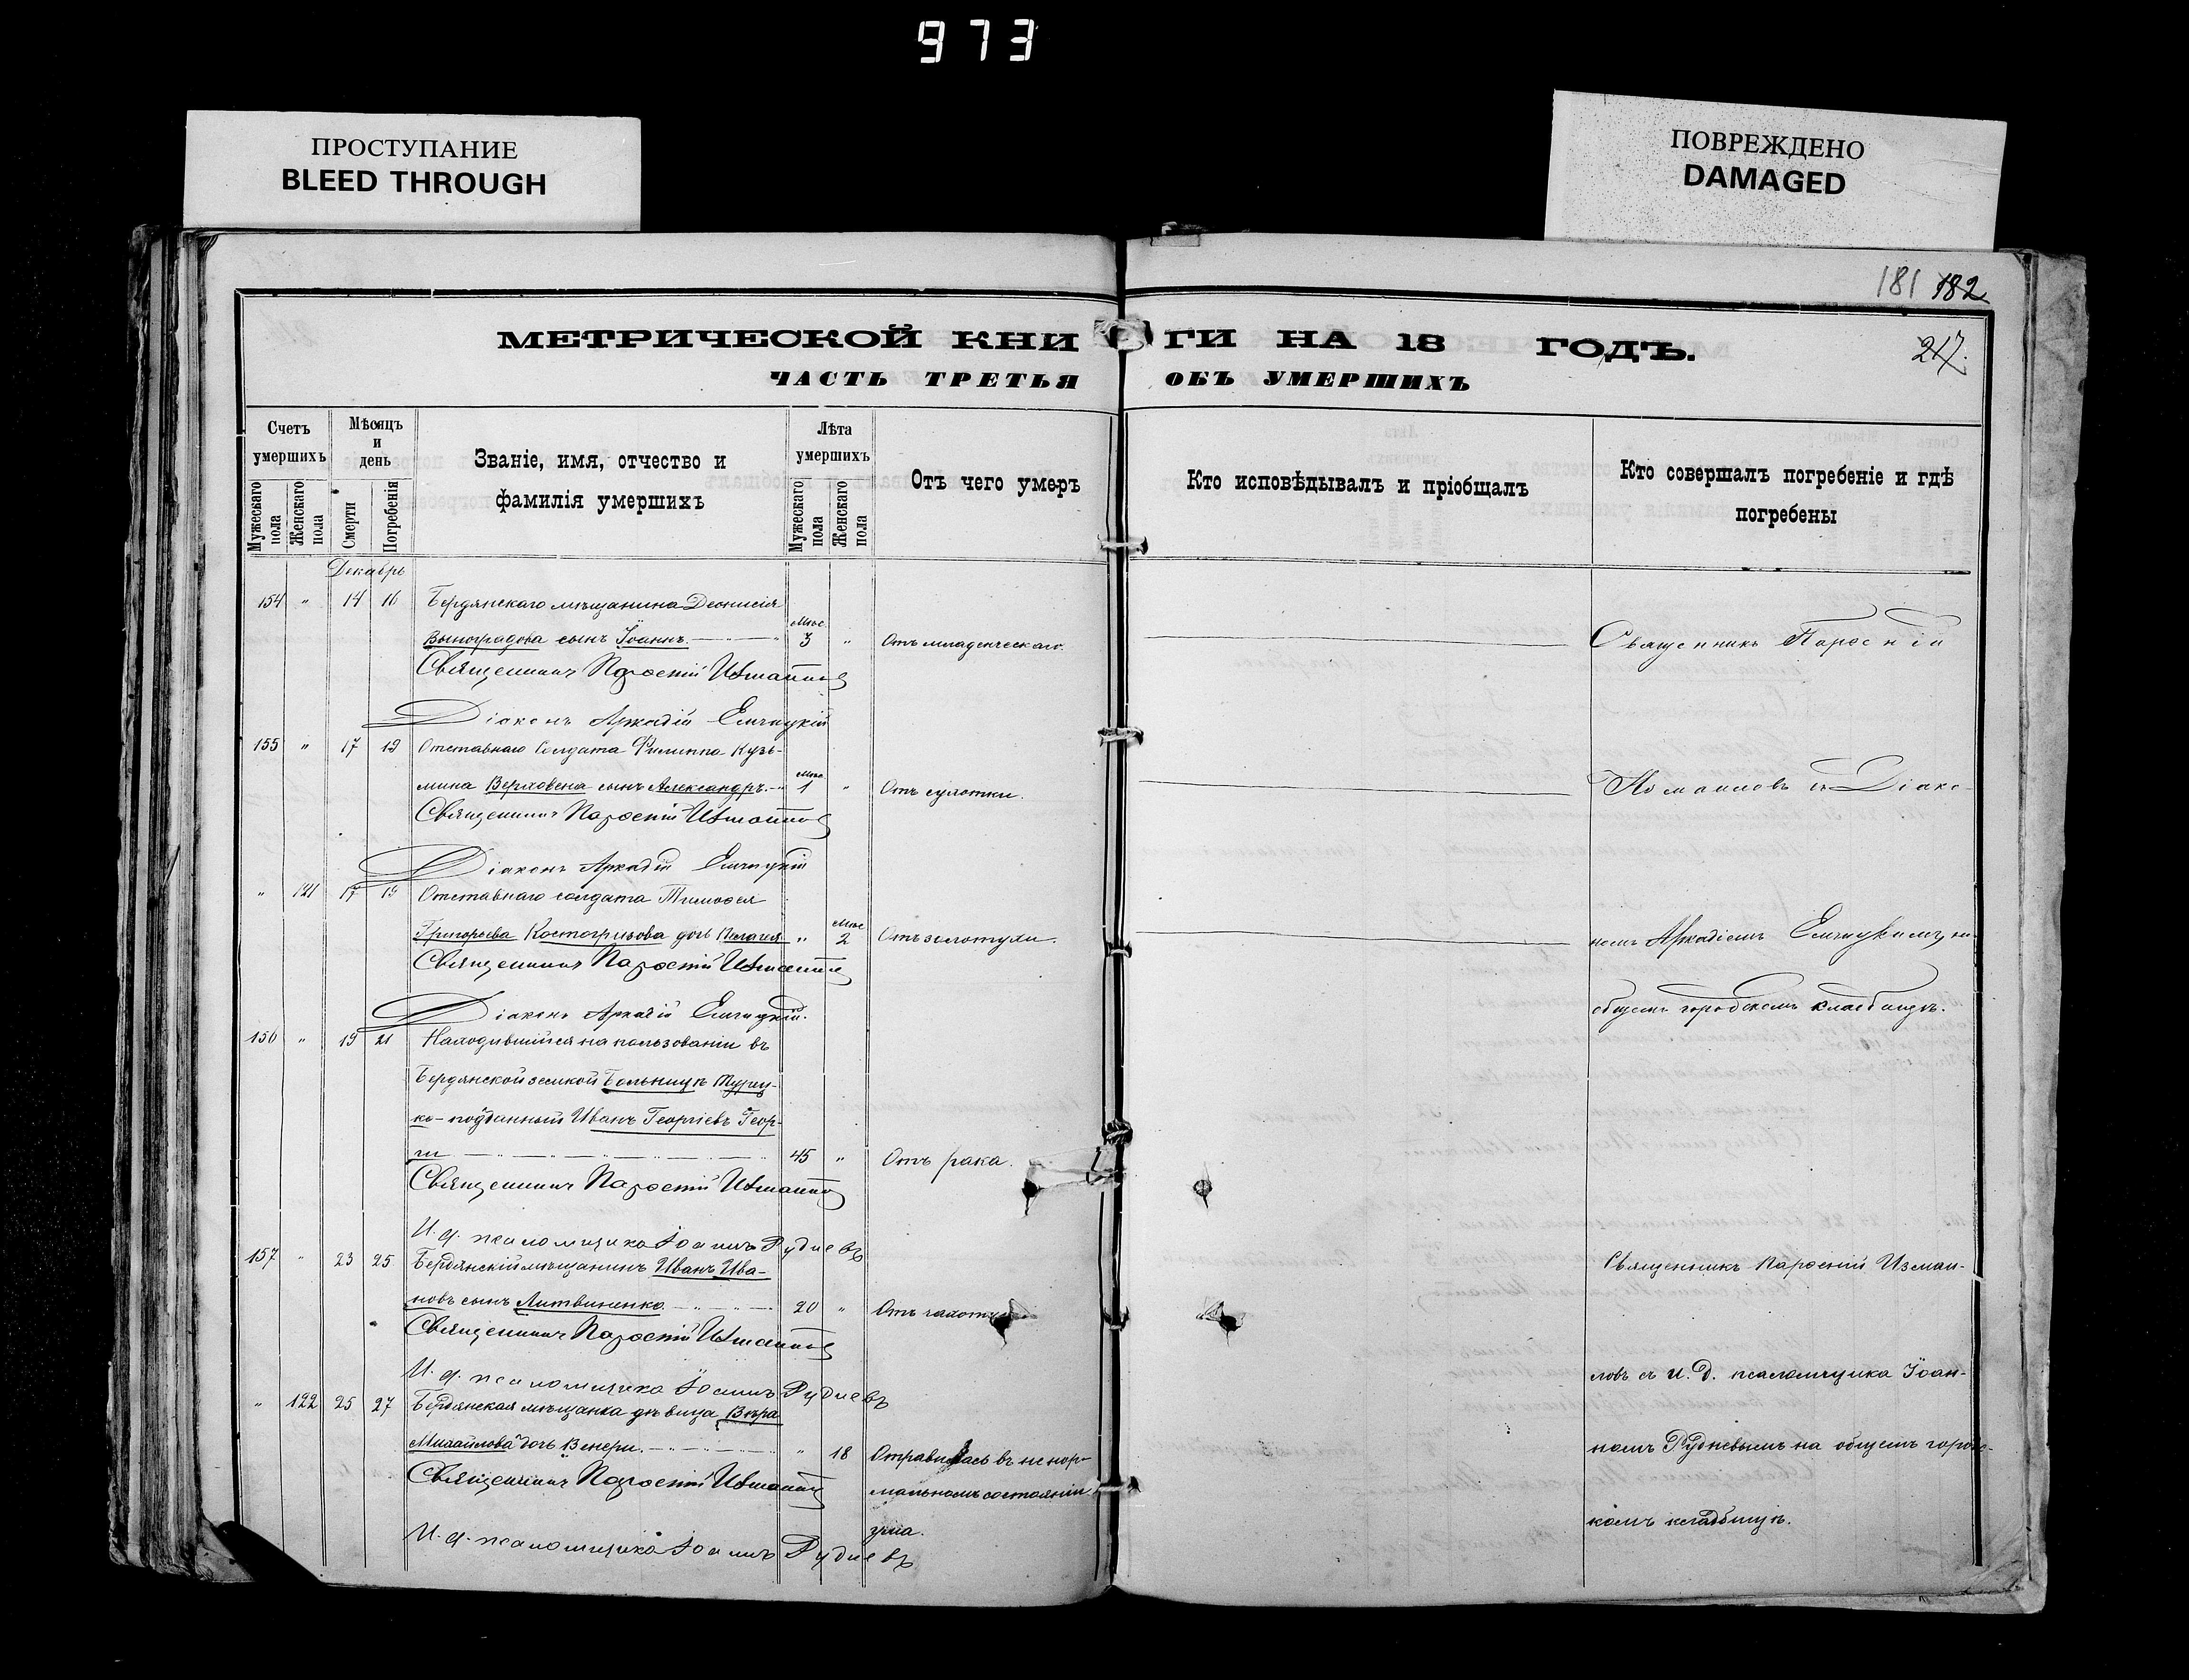 973
ПРОСТУПАНИЕ
BLEED THROUGH
ПОВРЕЖДЕНО
DAMAGED
181 182
217.
МЕТРИЧЕСКОЙ КНИГИ НА 18 ГОДЪ.
ЧАСТЬ ТРЕТЬЯ ОБЪ УМЕРШИХЪ
Счетъ умершихъ
Мужескаго пола
Женскаго пола
Мѣсяцъ и день
Смерти
Погребенія
Званіе, имя, отчество и фамилія умершихъ
Лѣта умершихъ
Мужескаго пола
Женскаго пола
Отъ чего умеръ
Кто исповѣдывалъ и пріобщалъ
Кто совершалъ погребеніе и гдѣ погребены
Декабрь
154 " 14 16 Бердянскаго мѣщанина Деонисія
Виноградова сынъ Іоаннъ. Мѣс. 3 " Отъ младенческаго.
Священникъ Парѳеній
Священникъ Парѳеній Измаиловъ
Діаконъ Аркадій Елчицкій
155 " 17 19 Отставнаго Солдата Филиппа Кузь-
мина Верховена сынъ Александръ. Мѣс. 1 " Отъ сухотки.
Измаиловъ съ Діако-
Священникъ Парѳеній Измаиловъ
Діаконъ Аркадій Елчицкій
" 121 17 19 Отставнаго солдата Тимоѳея
Григорьева Костогризова дочь Пелагея " Мѣс. 2 Отъ золотухи.
номъ Аркадіемъ Елчицкимъ на
Священникъ Парѳеній Измаиловъ
общемъ городскомъ кладбищѣ.
Діаконъ Аркадій Елчицкій.
156 " 19 21 Находившійся на пользованіи въ
Бердянской земской Больницѣ Турец-
ко-подданный Иванъ Георгіевъ Геор-
ги 45 " Отъ рака.
Священникъ Парѳеній Измаиловъ
И. д. псаломщика Іоаннъ Рудневъ
157 " 23 25 Бердянскій мѣщанинъ Иванъ Ива-
Священникъ Парѳеній Измаи-
новъ сынъ Литвиненко 20 " Отъ чахотки
Священникъ Парѳеній Измаиловъ
И. д. псаломщика Іоаннъ Рудневъ
ловъ съ И. Д. псаломщика Іоан-
" 122 25 27 Бердянская мѣщанка дѣвица Вѣра
Михайлова дочь Венери. " 18 Отравилась въ ненор-
мальномъ состояніи
ума.
номъ Рудневымъ на общемъ город-
скомъ кладбищѣ.
Священникъ Парѳеній Измаиловъ
И. д. псаломщика Іоаннъ Рудневъ